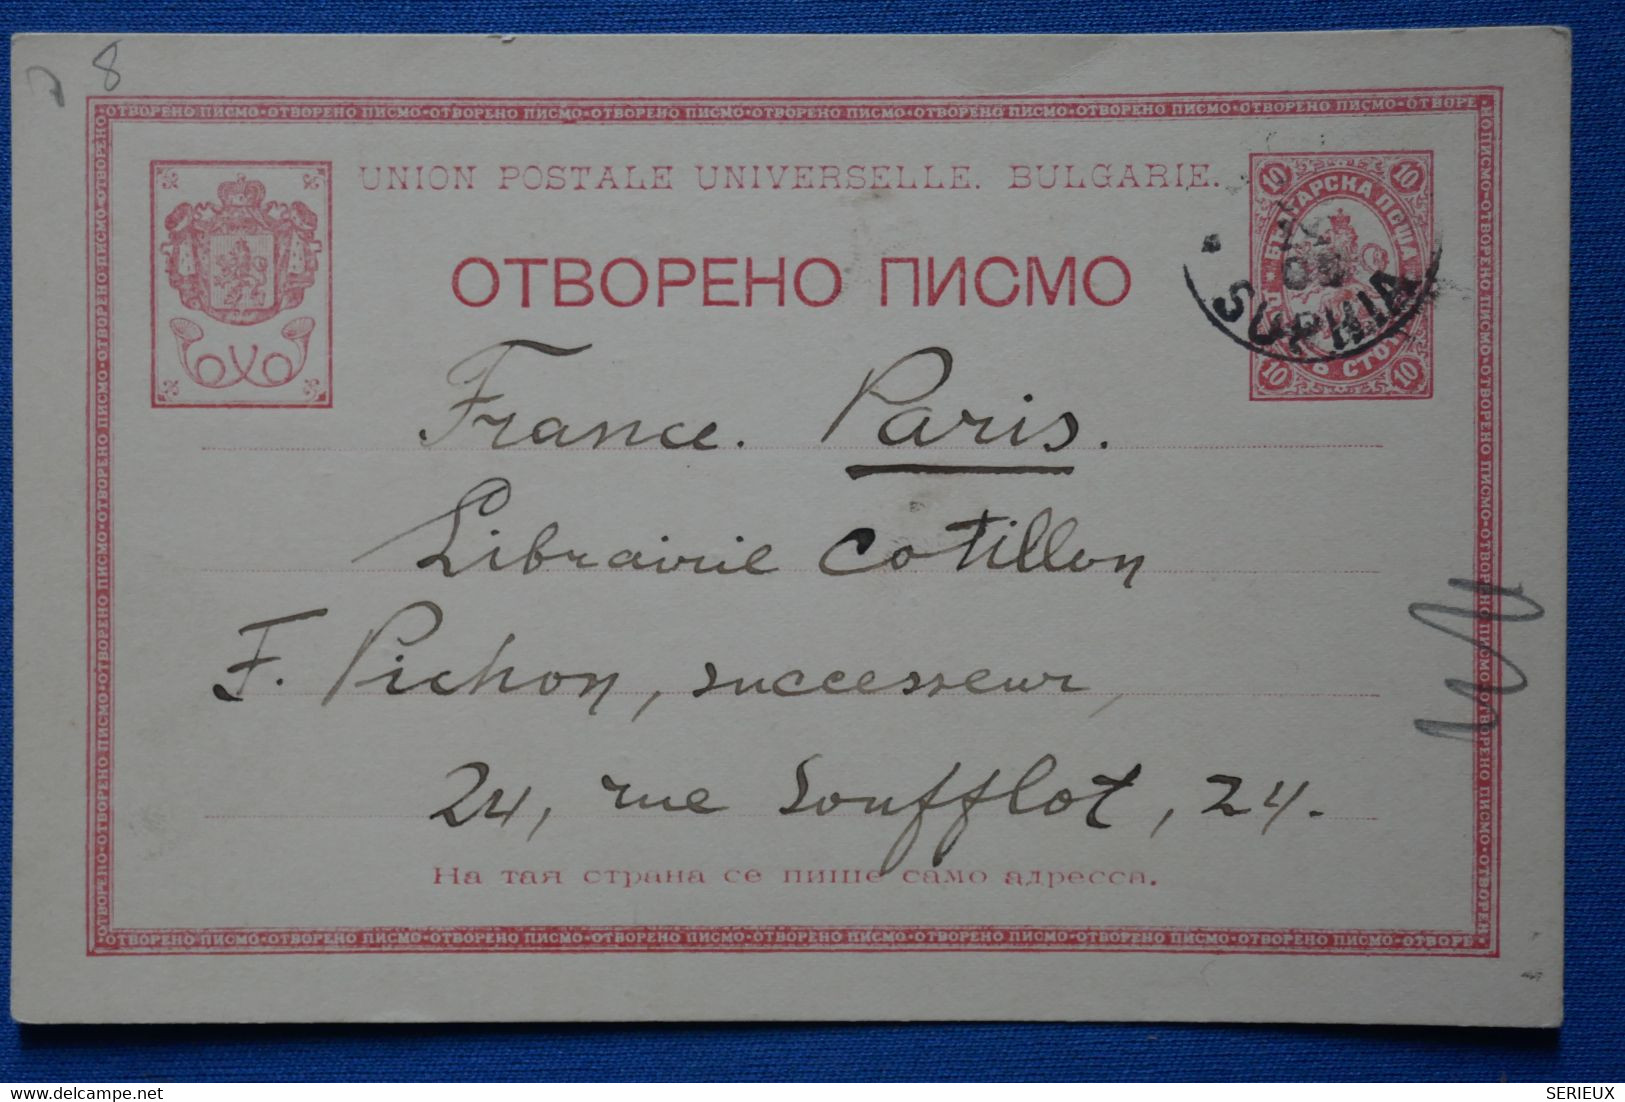 8
ОТВОРЕНО ПИСМО·ОТВОРЕНО ПИСМО·ОТВОРЕНО ПИСМО·ОТВОРЕНО ПИСМО·ОТВОРЕНО ПИСМО·ОТВОРЕНО ПИСМО·ОТВОРЕНО ПИСМО·ОТВОРЕНО ПИСМО·ОТВОРЕ
UNION POSTALE UNIVERSELLE. BULGARIE.
10 10
БЪЛГАРСКА ПОЩА
ОТВОРЕНО ПИСМО
SOPHIA
10 СТОТ 10
France. Paris.
Librairie Cotillon
F. Pichon, successeur,
24, rue Soufflot, 24.
На тая страна се пише само адресса.
ОТВОРЕНО ПИСМО·ОТВОРЕНО ПИСМО·ОТВОРЕНО ПИСМО·ОТВОРЕНО ПИСМО·ОТВОРЕНО ПИСМО·ОТВОРЕНО ПИСМО·ОТВОРЕНО ПИСМО·ОТВОРЕНО ПИСМО·ОТВОРЕ
delcampe.net
SERIEUX